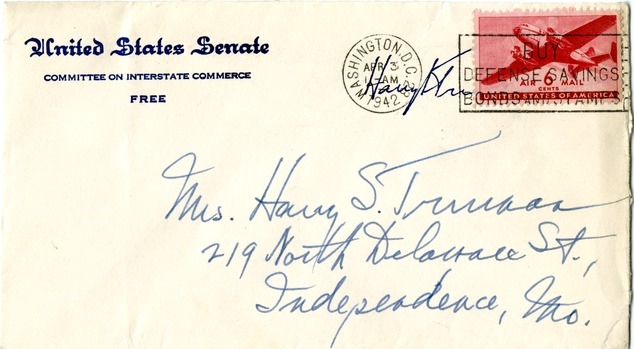 United States Senate
COMMITTEE ON INTERSTATE COMMERCE
FREE
WASHINGTON, D.C.
APR 3
AM
1942
BUY
DEFENSE SAVINGS
BONDS AND STAMPS
AIR 6 MAIL
CENTS
UNITED STATES OF AMERICA
Harry
Mrs. Harry S. Truman
219 North Delaware St.,
Independence, Mo.